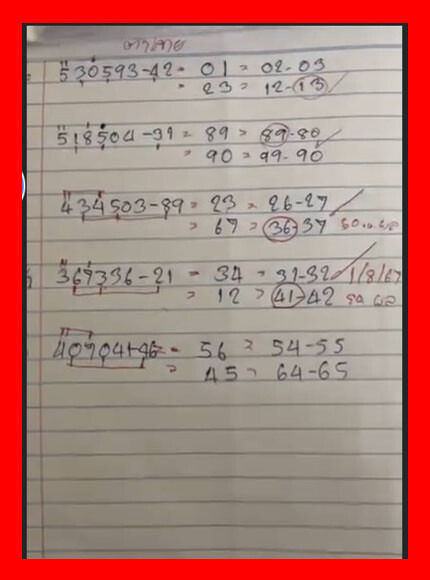 530593-42 = 01 = 02-03
= 23 = 12-13
518504-39 = 89 = 89-80
= 90 = 99-90
434503-89 = 23 = 26-27
= 67 = 36-37
367336-21 = 34 = 31-32 1/8/67
= 12 = 41-42
407041-46 = 56 = 54-55
= 45 = 64-65